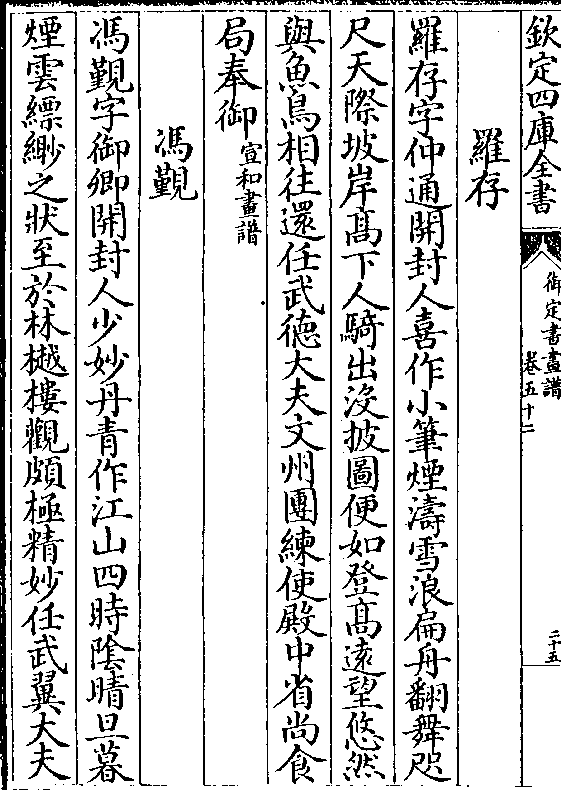 欽定四庫全書
御定書畫譜
卷五十二
二十五
羅存
羅存字仲通開封人喜作小筆煙濤雪浪扁舟翻舞咫
尺天際坡岸髙下人騎出沒披圖便如登髙遠望悠然
與魚鳥相往還任武德大夫文州團練使殿中省尚食
局奉御宣和畫譜
馮覲
馮覲字御卿開封人少妙丹青作江山四時隂晴旦暮
煙雲縹緲之狀至於林樾樓觀頗極精妙任武翼大夫